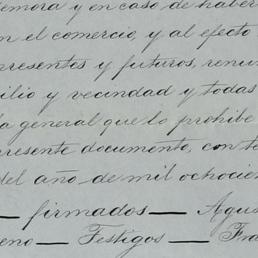 demora y en caso de haber
en el comercio, y al efecto
presentes y futuros, renun
ilio y vecindad y todas
la general que lo prohibe
presente documento, con to
del año de mil ochocien
— firmados — Agus
eno — Testigos — Fra